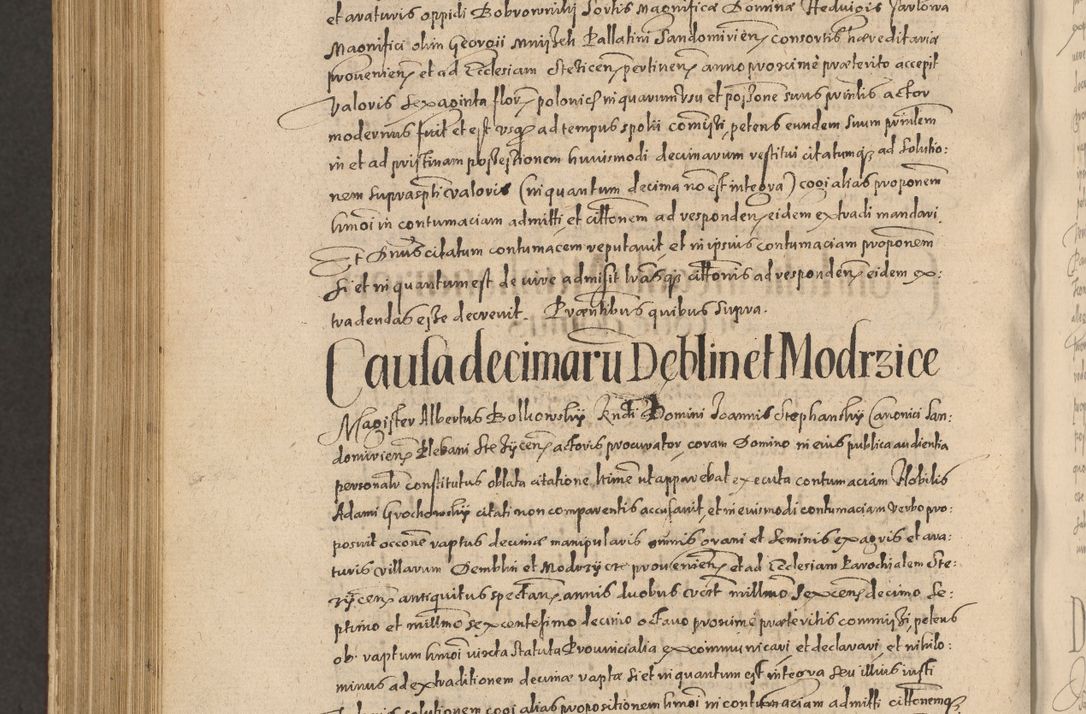 et araturis oppidi Bobrowniki Sortis Magnificæ Dominæ Heduigis Tarlowa
Magnifici olim Georgii Mnijzeh Pallatini Sandomirien consortis hæreditariæ
prouenien et ad Ecclesiam Stezicen pertinen anno proximè præterito accepit
valoris Sexaginta flor polonich in quarum vsu et poss͠one suus prin͠lis actor
modernus fuit et est vsq3 ad tempus spolii com͠issi, petens eundem suum prin͠lem
in et ad pristinam possessionem huiusmodi decimarum restitui citatumq3 ad solutio:
nem suprasp͠ti valoris (in quantum decima no͠ est integra) cogi alias proponem
hm͠oi in contumaciam admitti et cit͠tonem ad responden eidem extradi mandari.
Et D͠nus citatum contumacem reputauit et in ipsius contumaciam proponem
Si et in quantum est de iure admisit l͠rasq3 cit͠tonis ad responden eidem ex:
tradendas esse decreuit. Præn͠tibus quibus supra.
Causa decimaru͠ Dęblin et Modrzice
Magister Albertus Bolkowskÿ R͠ndi Domini Joannis Stephanskÿ Canonici San:
domirien Plebani Stezÿcen actoris procurator coram Domino in eius publica audientia
personal͠r constitutus oblata citatione l͠time͠ ut apparebat executa contumaciam Nobilis
Adami Grochowskÿ citati non comparentis accusauit, et in eiusmodi contumaciam verbo pro:
posuit occ͠one raptus decimæ manipularis om͠nis grani et seminis ex agris et ara:
turis villarum Demblin et Modrzÿcze prouenien et ad Ecclesiam Parochialem Ste:
zÿcen antiquitus spectan annis duobus v͠ert mill͠mo Sexcen decimo Se:
ptimo et mill͠mo sexcentesimo decimo octauo proxime præteritis commissi, petens
ob raptum hm͠oi iuxta statuta Prouincialia excommunicari et declarari, et nihilo:
minus ad extraditionem decimæ raptæ si et in quantum est integra seu illius iusti
valoris solutionem cogi alias propositionem hm͠oi in contumaciam admitti cit͠tonemq3